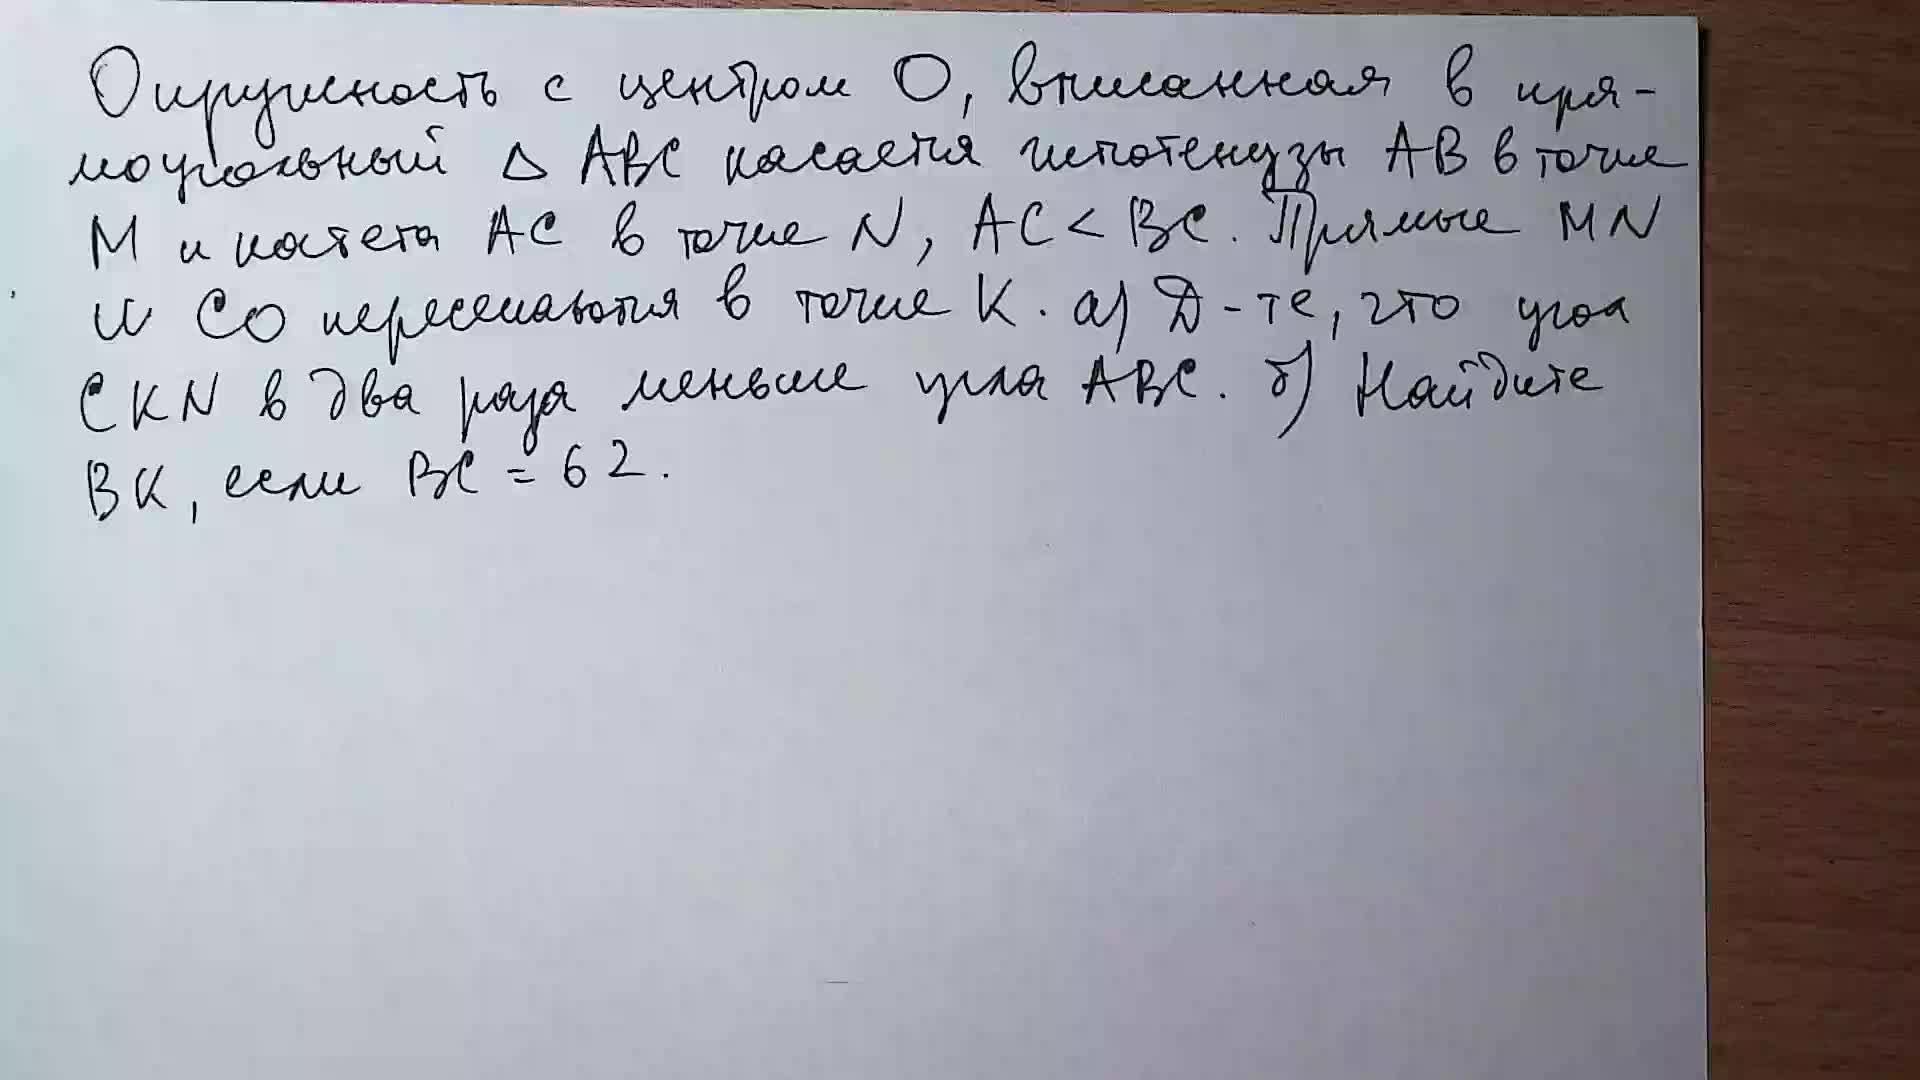 Окружность с центром O, вписанная в пря-
моугольный △ ABC касается гипотенузы AB в точке
M и катета AC в точке N, AC < BC. Прямые MN
и CO пересекаются в точке K. а) Д-те, что угол
CKN в два раза меньше угла ABC. б) Найдите
BK, если BC = 62.